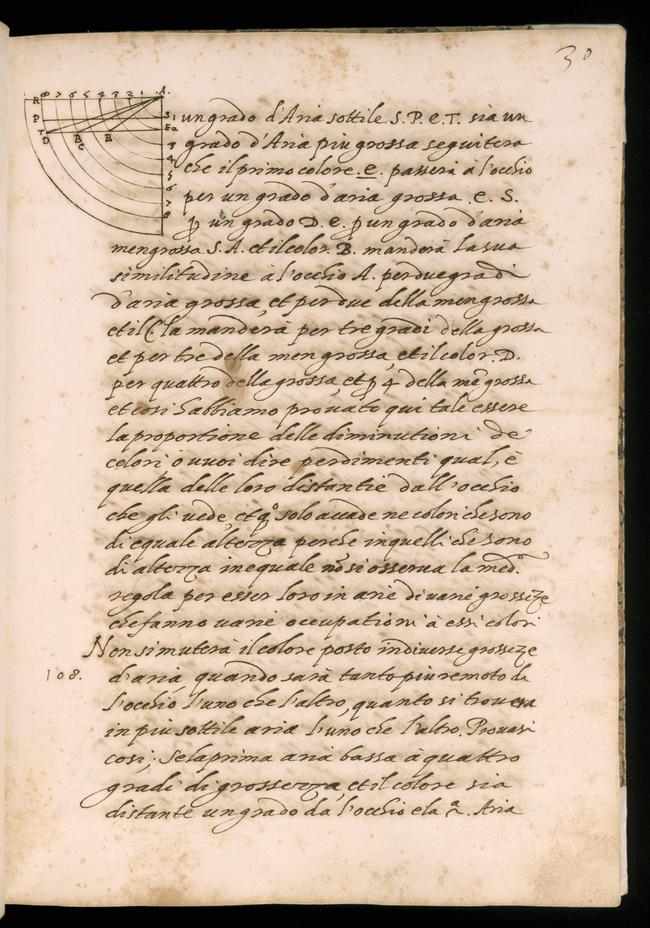 30
R 8 7 6 5 4 3 2 1 A.
P S 1
T D B C B E 2
3
4
5
6
7
8
un grado d'Aria sottile S. P. e. T. sia un
grado d'Aria piu grossa seguitera
che il primo colore .e. passerà à l'occhio
per un grado d'aria grossa .e. S.
ꝑ un grado D. e. ꝑ un grado d'aria
mengrossa S. A. et il color. B. manderà la sua
similitudine à l'occhio A. per due gradi
d'aria grossa, et per due della mengrossa
et il C la manderà per tre gradi della grossa
et per tre della mengrossa, et il color. D.
per quattro della grossa, et ꝑ 4 della mẽ grossa
et cosi habbiamo prouato qui tale essere
la proportione delle diminutioni de
colori ò vuoi dire perdimenti qual, è
quella delle loro distantie dall'occhio
che gli vede, et qo solo accade ne colori che sono
di equale altezza perche in quelli che sono
di altezza inequale nõ si osserua la med.a
regola per esser loro in arie di varie grosseze
che fanno varie occupationi à essi colori
Non si muterà il colore posto in diuerse grosseze
108. d'aria quando sarà tanto piu remoto da
l'occhio l'uno che l'altro, quanto si trouerà
in piu sottile aria l'uno che l'altro. Prouasi
cosi; Se la prima aria bassa à quattro
gradi di grossezza, et il colore sia
distante un grado da l'occhio e la 2.a Aria